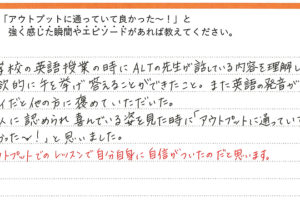 「アウトプットに通っていて良かった〜！」と
強く感じた瞬間やエピソードがあれば教えてください。
学校の英語授業の時にALTの先生が話している内容を理解し
欲的に手を挙げ答えることができたこと。また英語の発音が
イだと他の方に褒めていただいた。
人に認められ喜んでいる姿を見た時に「アウトプットに通ってい
かった〜！」と思いました。
トプットでのレッスンで自分自身に自信がついたのだと思います。